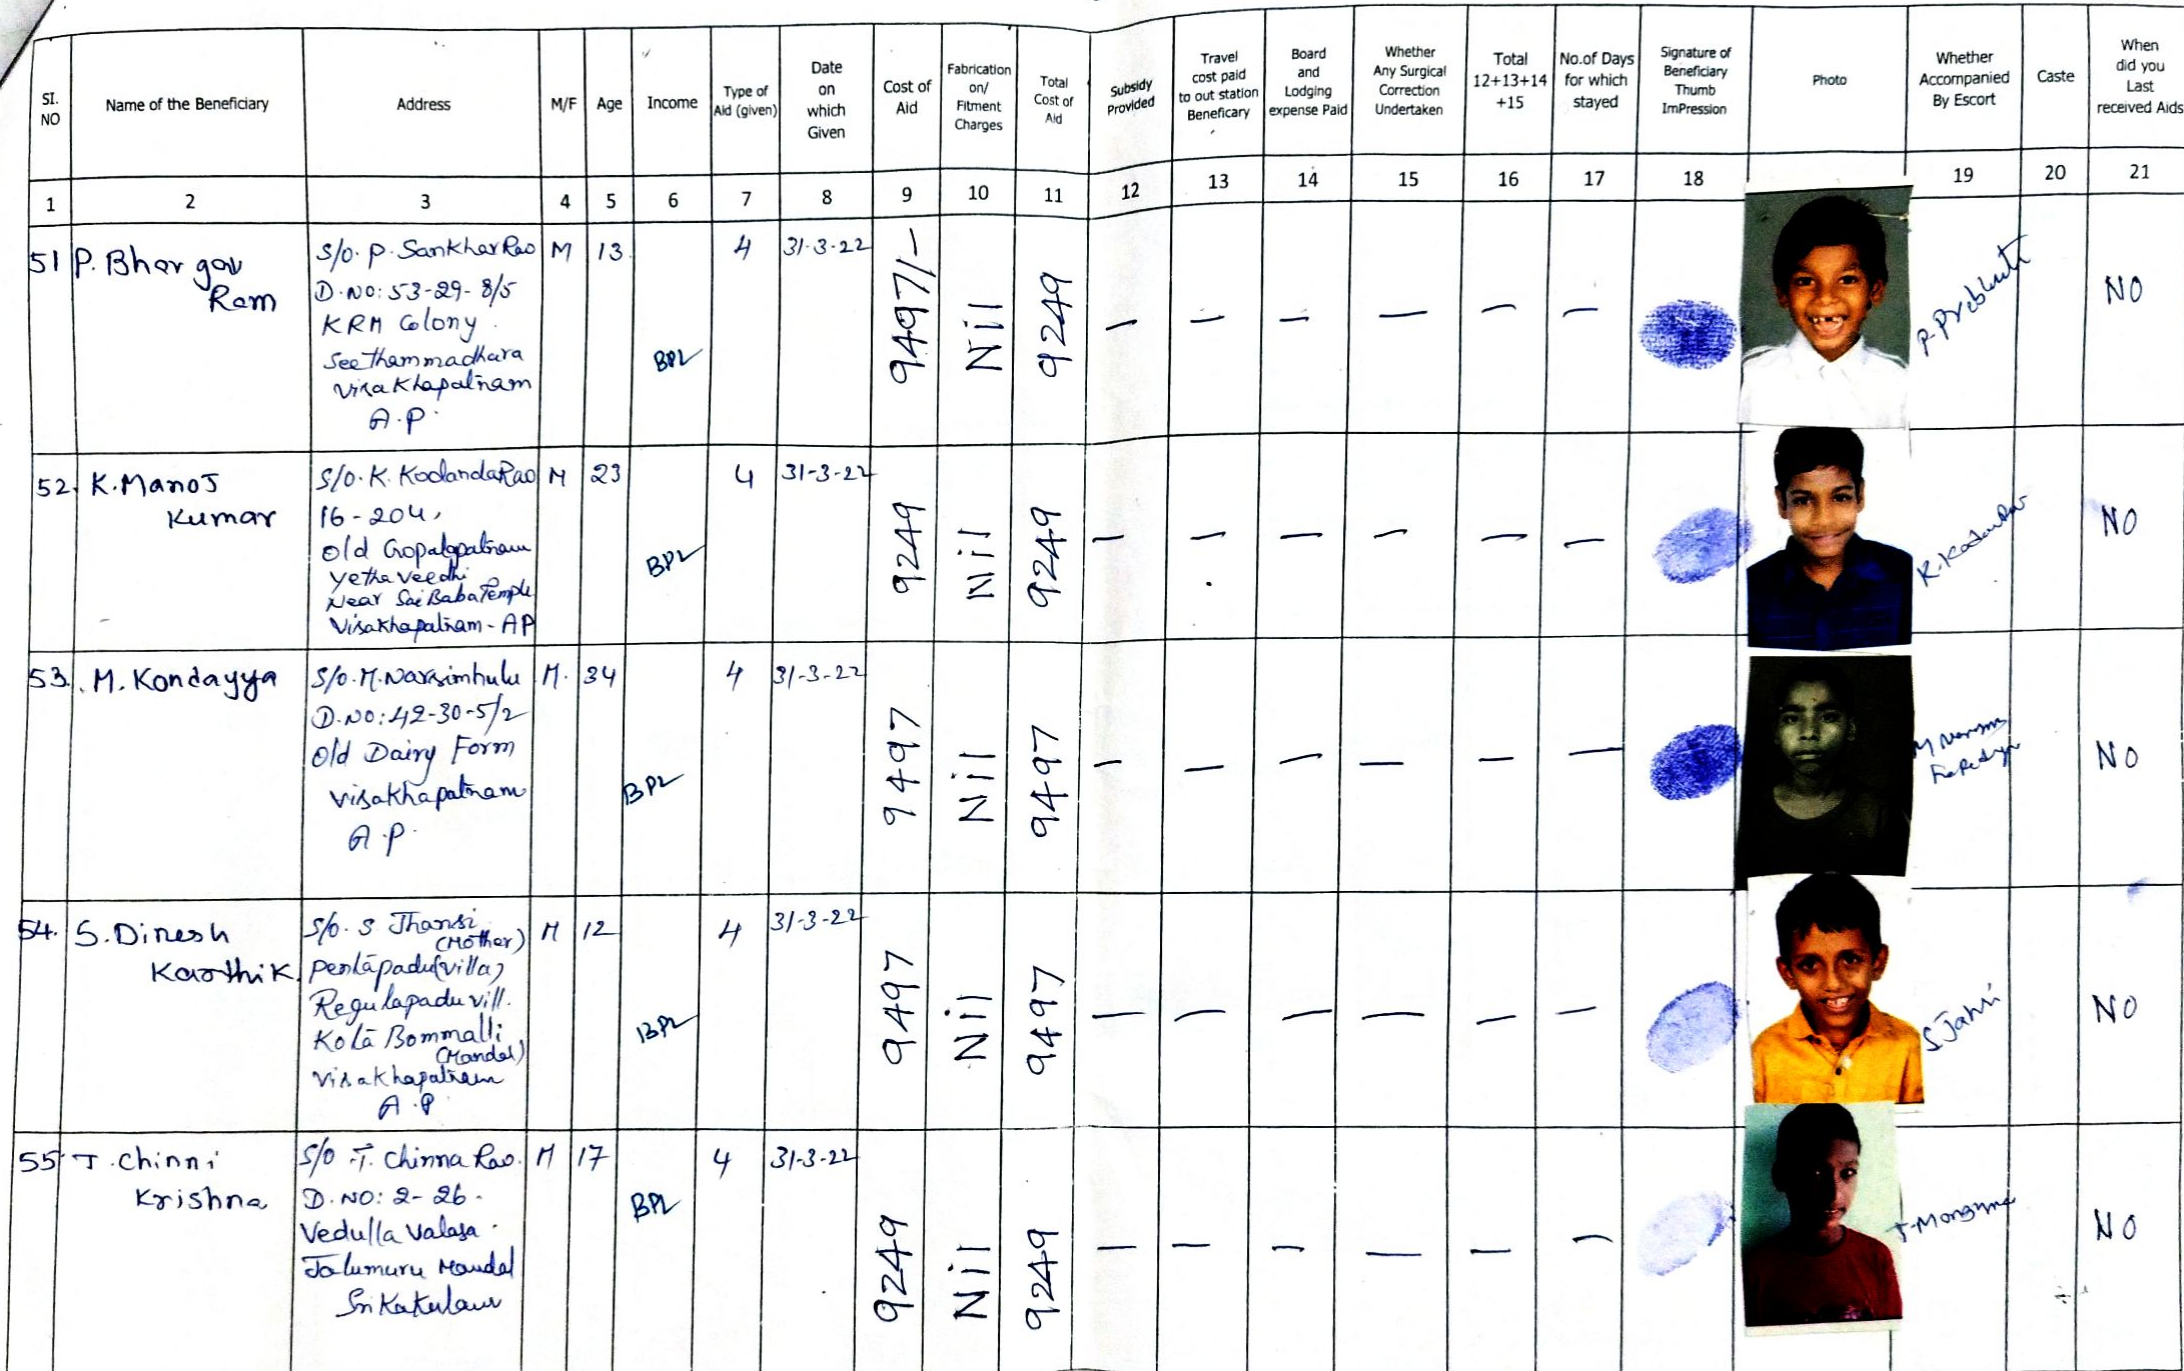 SI. NO
Name of the Beneficiary
Address
M/F
Age
Income
Type of Aid (given)
Date on which Given
Cost of Aid
Fabrication on/ Fitment Charges
Total Cost of Aid
Subsidy Provided
Travel cost paid to out station Beneficary
Board and Lodging expense Paid
Whether Any Surgical Correction Undertaken
Total 12+13+14 +15
No.of Days for which stayed
Signature of Beneficiary Thumb ImPression
Photo
Whether Accompanied By Escort
Caste
When did you Last received Aids
1 2 3 4 5 6 7 8 9 10 11 12 13 14 15 16 17 18 19 20 21
51 P. Bhargav Ram
S/o. P. Sankhar Rao
D.NO: 53-29-8/5
KRM Colony
Seethammadhara
Visakhapatnam
A.P.
M 13 BPL 4 31-3-22 9497/- Nil 9249 — — — — — — NO
52. K. Manoj Kumar
S/o. K. Kodanda Rao
16-204,
Old Gopalapatnam
Yetha veedhi
Near Sai Baba Temple
Visakhapatnam - AP
M 23 BPL 4 31-3-22 9249 Nil 9249 — — — — — — NO
53. M. Kondayya
S/o. M. Narasimhulu
D.NO: 42-30-5/2
Old Dairy Form
Visakhapatnam
A.P.
M. 34 BPL 4 31-3-22 9497 Nil 9497 — — — — — — NO
54. S. Dinesh Karthik.
S/o. S. Jhansi (Mother)
Pentapadu (villa)
Regulapadu vill.
Kota Bommalli (Mandal)
Visakhapatnam
A.P
M 12 BPL 4 31-3-22 9497 Nil 9497 — — — — — — NO
55 T. Chinni Krishna
S/o T. Chinna Rao.
D.NO: 2-26.
Vedulla Valasa.
Jalumuru Mandal
Srikakulam
M 17 BPL 4 31-3-22 9249 Nil 9249 — — — — — — NO